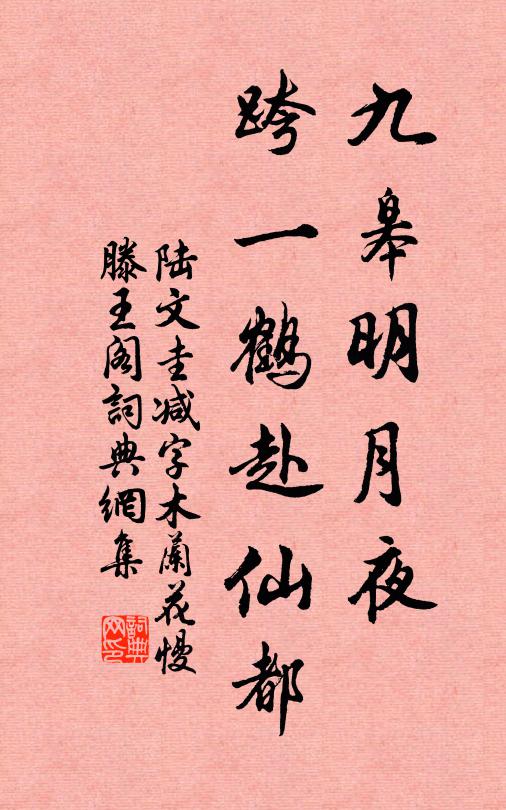 九皋明月夜
跨一鹤赴仙都
陆文圭减字木蘭花慢
滕王阁詞典網集
詞典网印